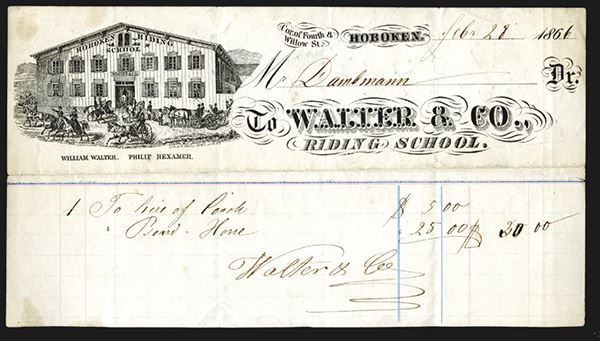 HOBOKEN RIDING
SCHOOL
Cor. of Fourth &
Willow St.
HOBOKEN, Feb. 28 1866
M Dambmann Dr.
To WALTER & CO.,
RIDING SCHOOL.
WILLIAM WALTER. PHILIP HEXAMER.
1 To hire of Coach $ 5 00
" Board - Horse " 25 00 $ 30 00
Walter & Co